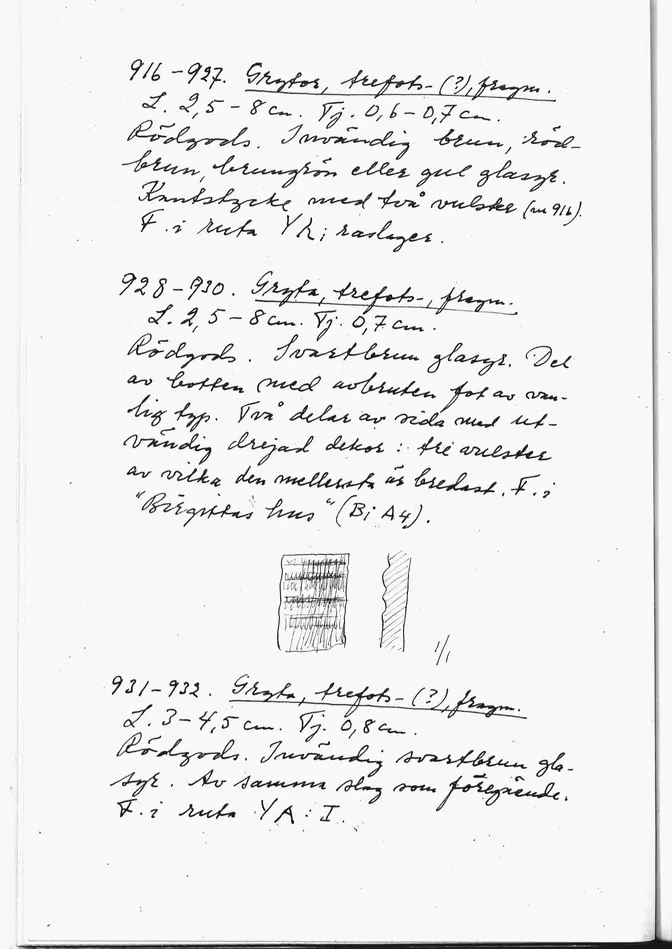 916-927. Grytor, trefots- (?), fragm.
L. 2,5 - 8 cm. Tj. 0,6 - 0,7 cm.
Rödgods. Invändig brun, röd-
brun, brungrön eller gul glasyr.
Kantstycke med två vulster (nr 916).
F. i ruta YK; raslager.
928-930. Gryta, trefots-, fragm.
L. 2,5 - 8 cm. Tj. 0,7 cm.
Rödgods. Svartbrun glasyr. Del
av botten med avbruten fot av van-
lig typ. Två delar av sida med ut-
vändig drejad dekor: tre vulster
av vilka den mellersta är bredast. F. i
"Birgittas hus" (Bi A4).
1/1
931-932. Gryta, trefots- (?), fragm.
L. 3-4,5 cm. Tj. 0,8 cm.
Rödgods. Invändig svartbrun gla-
syr. Av samma slag som föregående.
F. i ruta YA: I.